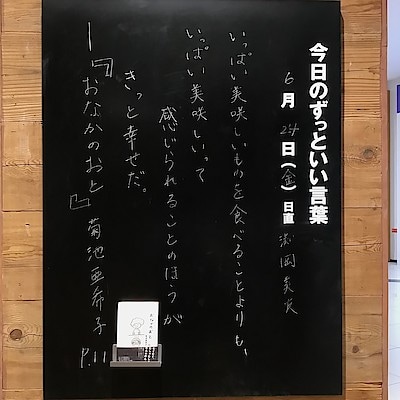 今日のずっといい言葉
6月24日(金)日直
いっぱい美味しいものを食べることよりも、
いっぱい美味しいって
感じられることのほうが
きっと幸せだ。
―『おなかのおと』菊池亜希子 P.11